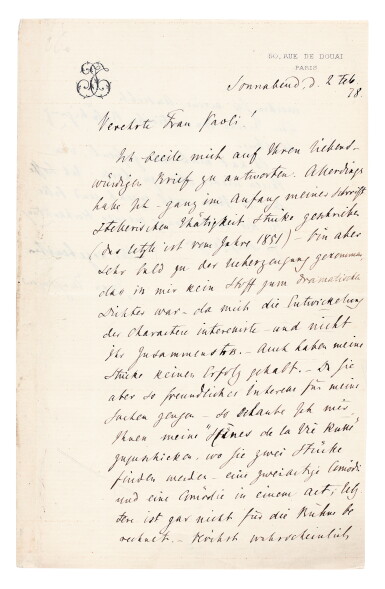 50, RUE DE DOUAI
PARIS
Sonnabend, d. 2 Feb.
78.
Verehrte Frau Paoli!
Ich beeile mich auf Ihren liebens-
würdigen Brief zu antworten. Allerdings
habe ich – ganz im Anfang meiner schrift-
stellerischen Thätigkeit Stücke geschrieben
(das letzte ist vom Jahre 1851) – bin aber
sehr bald zu der Ueberzeugung gekommen,
dass in mir kein Stoff zum dramatischen
Dichter war – da mich die Entwickelung
der Charactere interessirte – und nicht
ihr Zusammenstoss. – Auch haben meine
Stücke keinen Erfolg gehabt. – Da Sie
aber so freundliches Interesse für meine
Sachen zeigen – so erlaube ich mir
Ihnen meine "Scènes de la Vie Russe"
zuzuschicken, wo Sie zwei Stücke
finden werden – eine zweiactige Comödie
und eine Comödie in einem Act; letz-
tere ist gar nicht für die Bühne be-
rechnet. – Höchst wahrscheinlich